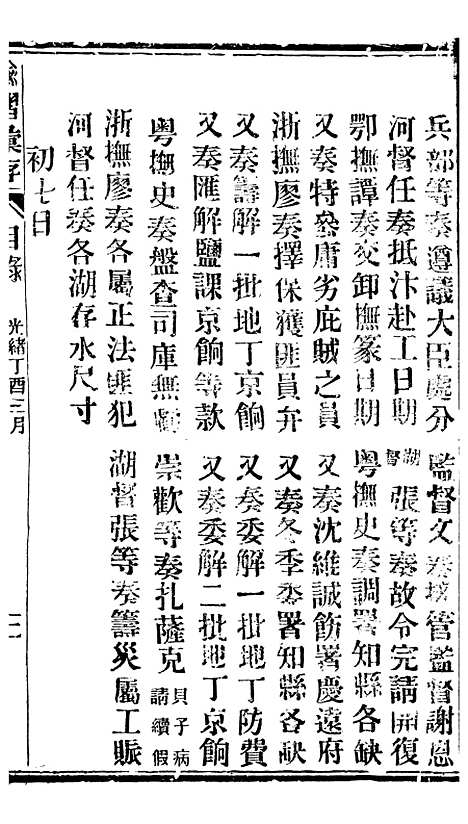 兵部等奏遵議大臣處分　監督文奏接管監督謝恩
河督任奏抵汴赴工日期　湖督張等奏故令完請開復
鄂撫譚奏交卸撫篆日期　粵撫史奏調署知縣各缺
又奏特參庸劣庇賊之員　又奏沈維誠飭署慶遠府
浙撫廖奏擇保獲匪員弁　又奏冬季委署知縣各缺
又奏籌解一批地丁京餉　又奏委解一批地丁防費
又奏匯解鹽課京餉等款　又奏委解二批地丁京餉
粵撫史奏盤查司庫無虧　崇歡等奏扎薩克貝子病請續假
浙撫廖奏各屬正法匪犯　湖督張等奏籌災屬工賑
河督任奏各湖存水尺寸
初七日
諭摺彙存　目錄　光緒丁酉三月